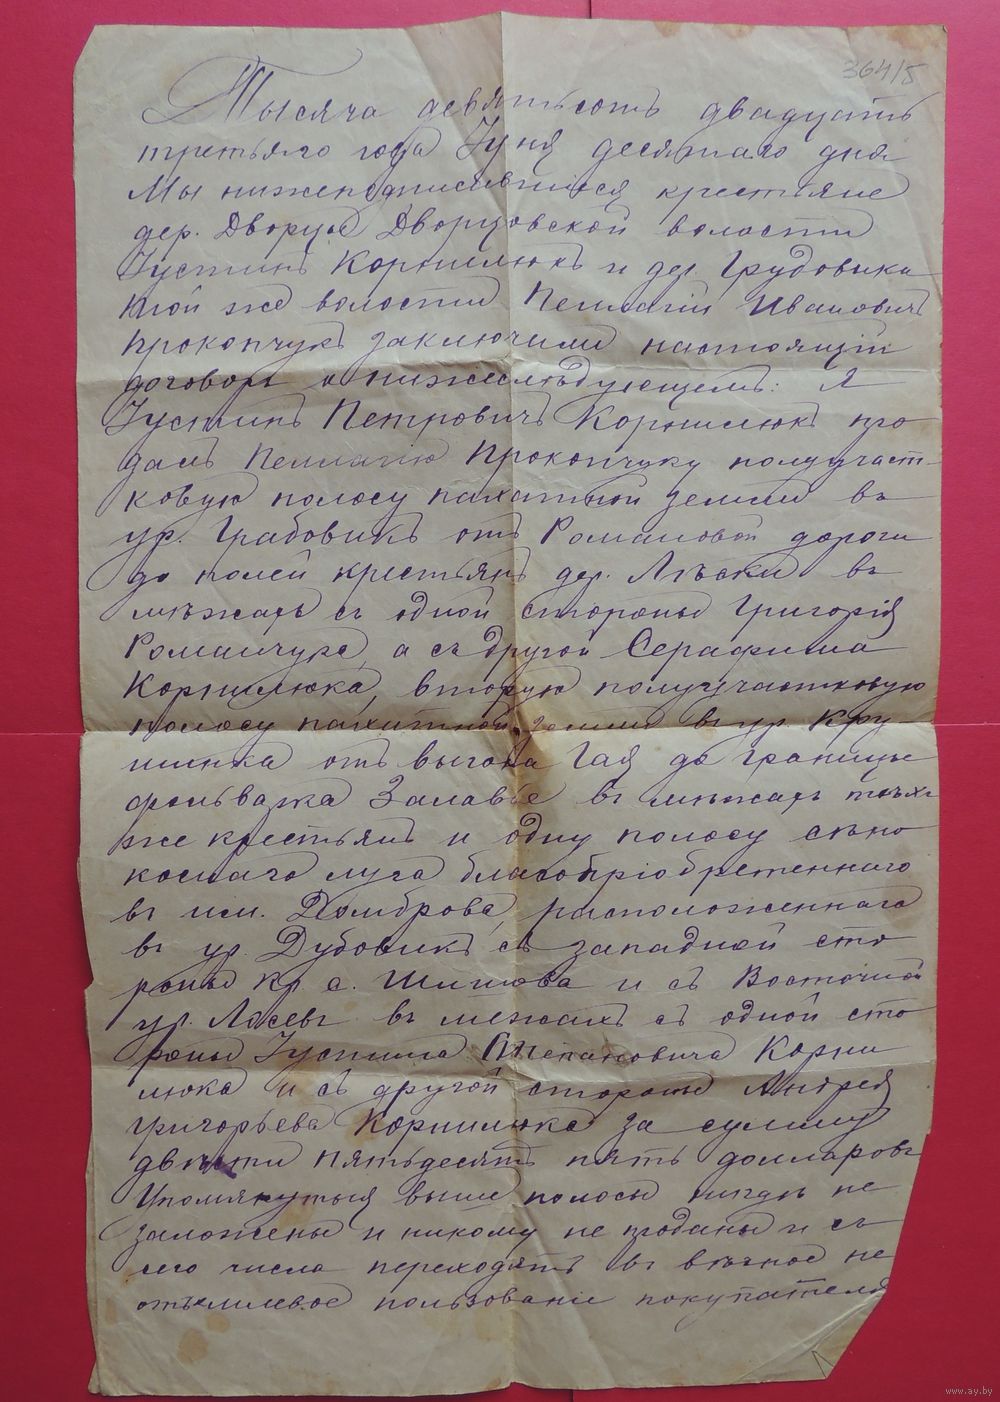 364/5
Тысяча девятьсотъ двадцать
третьяго года Іуня десятаго дня
Мы нижеподписавшіися крестьяне
дер. Дворца Дворцовской волости
Іустинъ Корнилюкъ и дер. Грудовика
той же волости Пеллагій Ивановичъ
Прокопчукъ заключили настоящій
договоръ о нижеслѣдующемъ: Я
Іустинъ Петровичъ Корнилюкъ про
далъ Пеллагію Прокопчуку полуучаст-
ковую полосу пахатной земли въ
ур. Грабовикъ отъ Романовой дороги
до полей крестьянъ дер. Лѣски въ
мѣжахъ съ одной стороны Григорія
Романчука, а съ другой Серафима
Корнилюка, вторую полуучастковую
полосу пахатной земли въ ур. Кру-
шинка отъ выгона Гая до границы
фольварка Залавье въ мѣжахъ тѣхъ
же крестьянъ и одну полосу сѣно
коснаго луга благопріобретеннаго
въ им. Домброва, расположеннаго
въ ур. Дубовикъ, съ западной сто
роны кр. с. Шилова и съ Восточной
ур. Лясевъ въ межахъ съ одной сто
роны Іустина Степановича Корни
люка и съ другой стороны Андрея
Григорьева Корнилюка за сумму
двѣсти пятьдесятъ пять долларовъ
Упомянутыя выше полосы нигдѣ не
заложены и никому не проданы и съ
сего числа переходятъ въ вѣчное не
отъемлемое пользованіе покупателя
www.ay.by